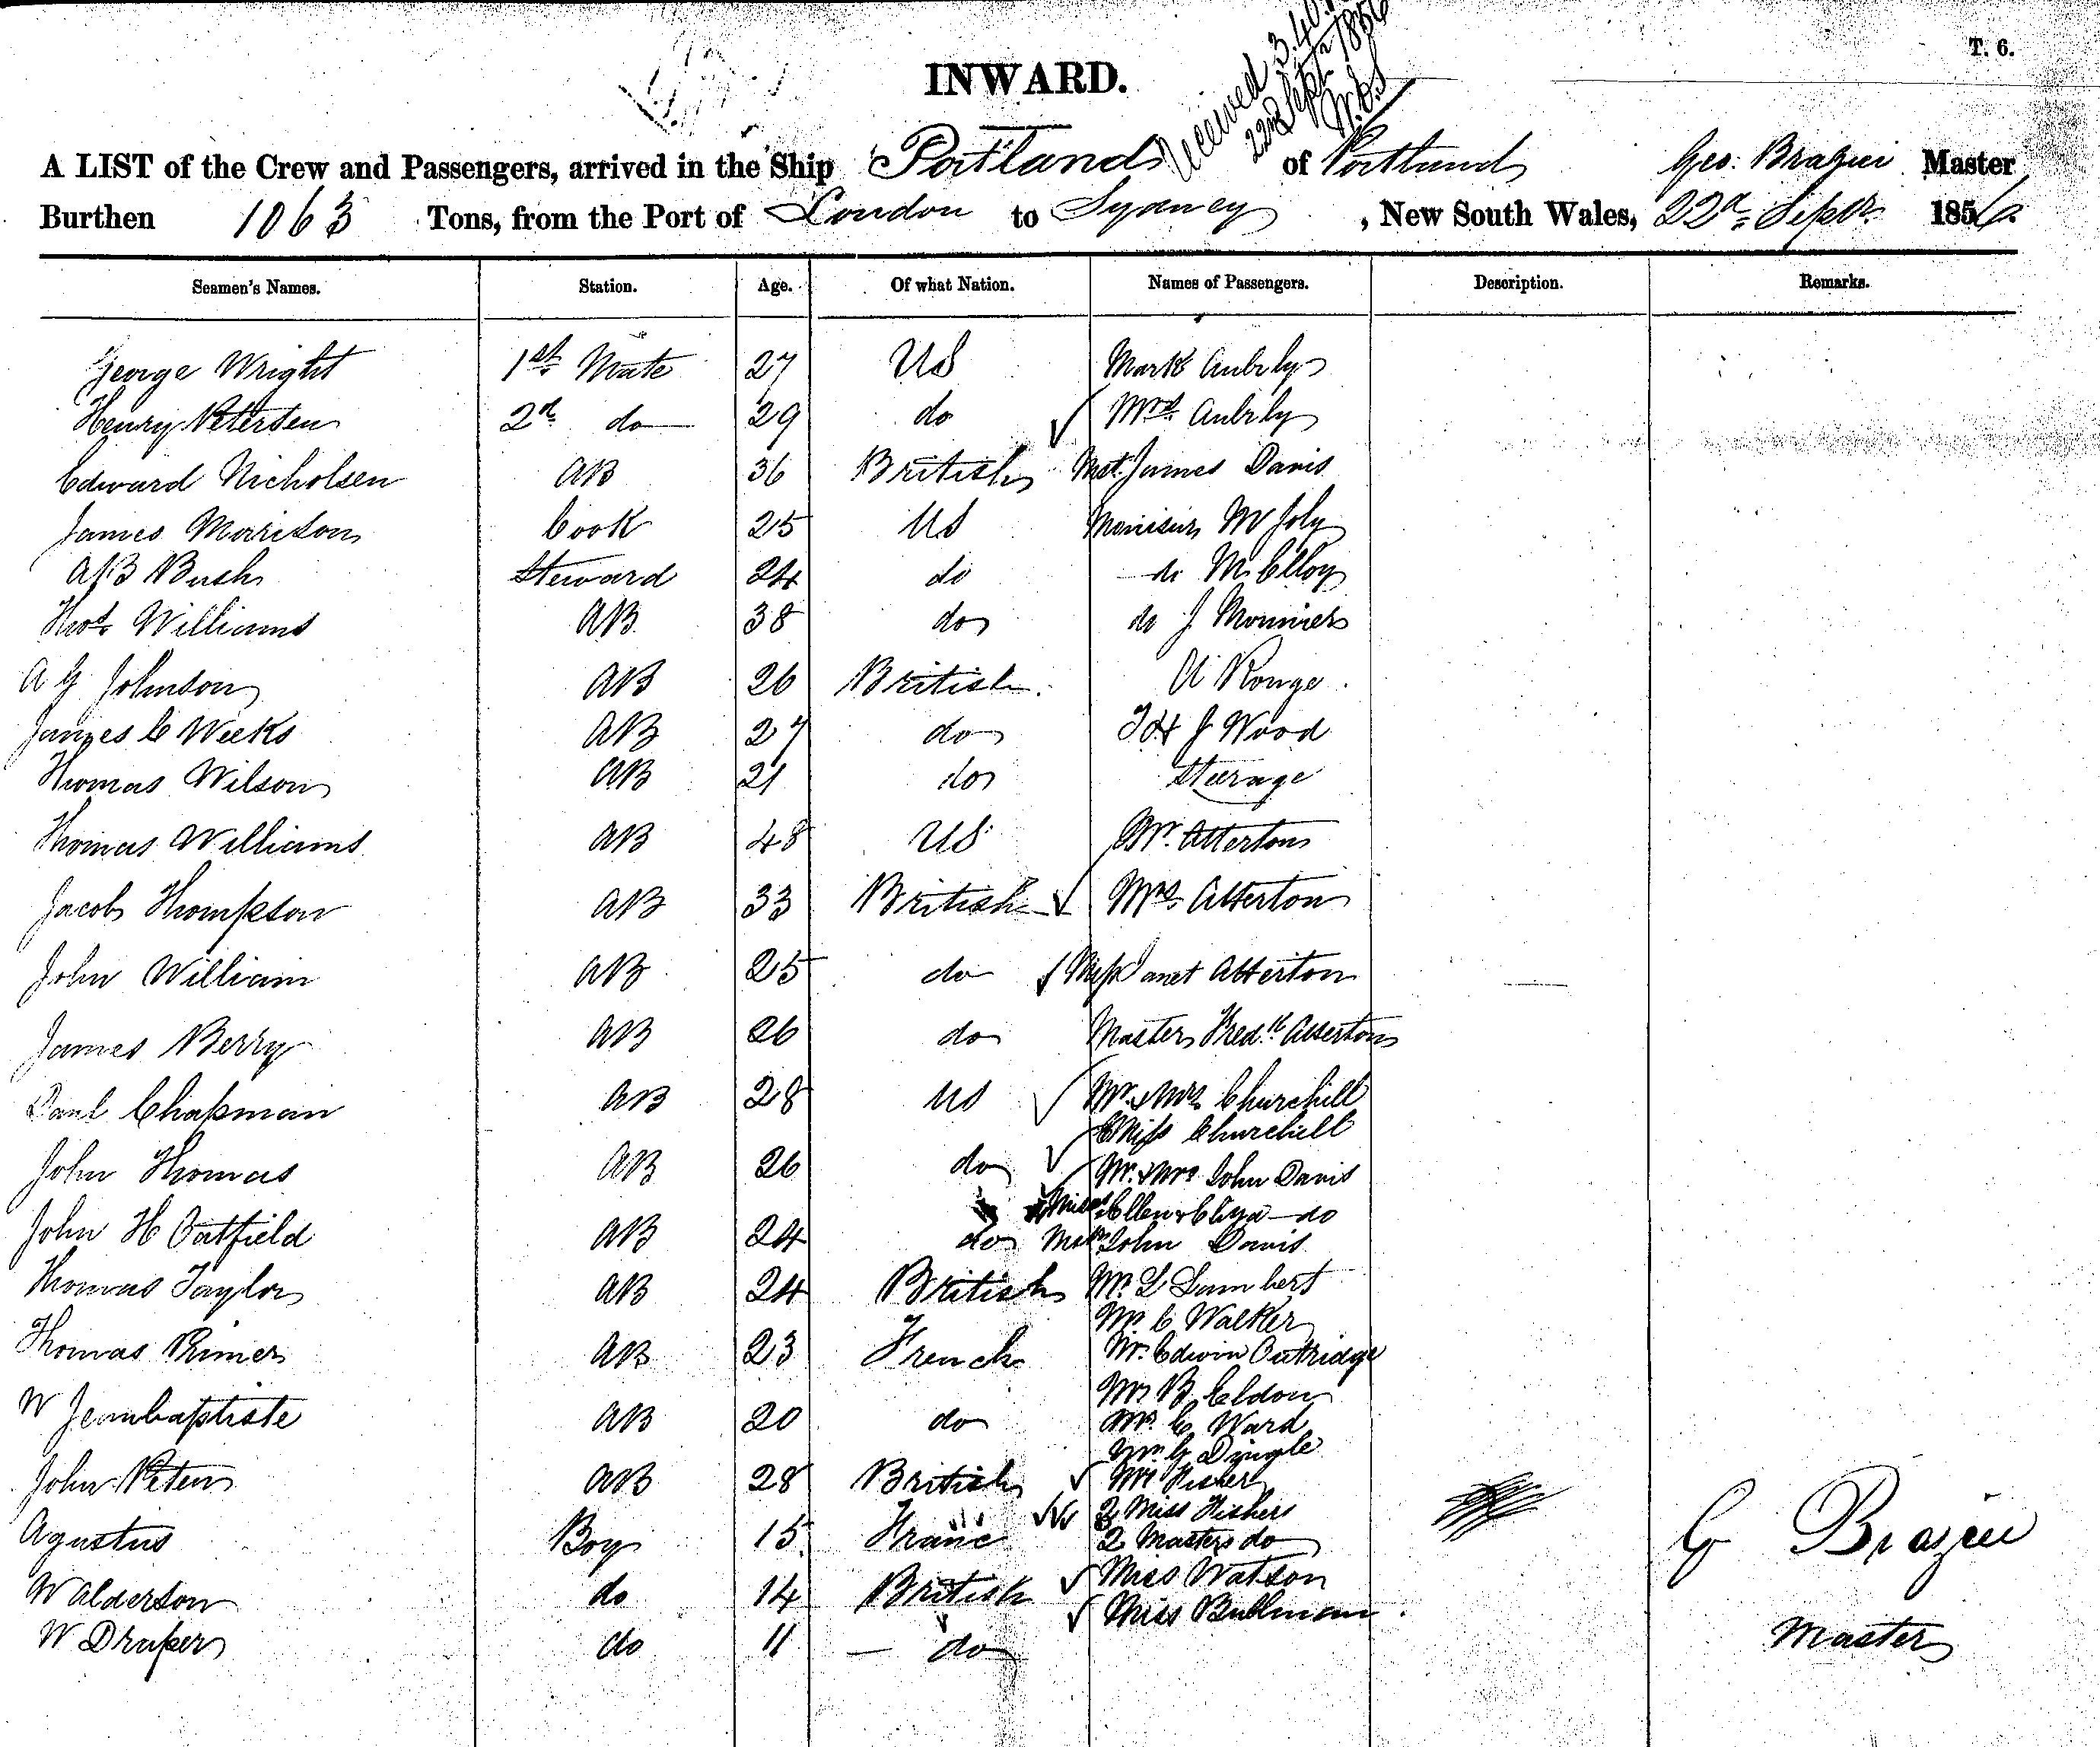 T. 6.
INWARD.
Received 3.40
22nd Sept 1856
A LIST of the Crew and Passengers, arrived in the Ship Portland of Portland Geo: Brazier Master
Burthen 1063 Tons, from the Port of London to Sydney, New South Wales, 22d Septr. 1856
Seamen's Names. Station. Age. Of what Nation. Names of Passengers. Description. Remarks.
George Wright 1st Mate 27 US Mark Aubrly
Henry Petersen 2d do 29 do Mrs Aubrly
Edward Nicholsen AB 36 British Mst. James Davis
James Morison Cook 25 US Monisur M Joly
A B Bush Steward 24 do do M. Elloy
Thos Williams AB 38 do do J Monnier
A G Johnson AB 26 British A Ronge
James C Weeks AB 27 do J Wood
Thomas Wilson AB 21 do Steerage
Thomas Williams AB 48 US Mr. Atterton
Jacob Thompson AB 33 British Mrs Atterton
John William AB 25 do Miss Janet Atterton
James Berry AB 26 do Master Fredk Atterton
Danl Chapman AB 28 US Mr. & Mrs Churchill
Miss Churchill
John Thomas AB 26 do Mr. & Mrs John Davis
Misses Ellen & Eliza do
John H Oatfield AB 24 do Mstr John Davis
Thomas Taylor AB 24 British Mr. L Lambert
Mr. C Walker
Thomas Rimer AB 23 French Mr. Edwin Outridge
Mr B. Eldon
W Jeanbaptiste AB 20 do Mr. C Ward
Mr. G Dingle
John Peters AB 28 British Mr Fisher
2 Miss Fishers
Agustus Boy 15 France 2 Masters do
Miss Watson
W Alderson do 14 British Miss Bullman
W Draper do 11 — do
G Brazier
Master